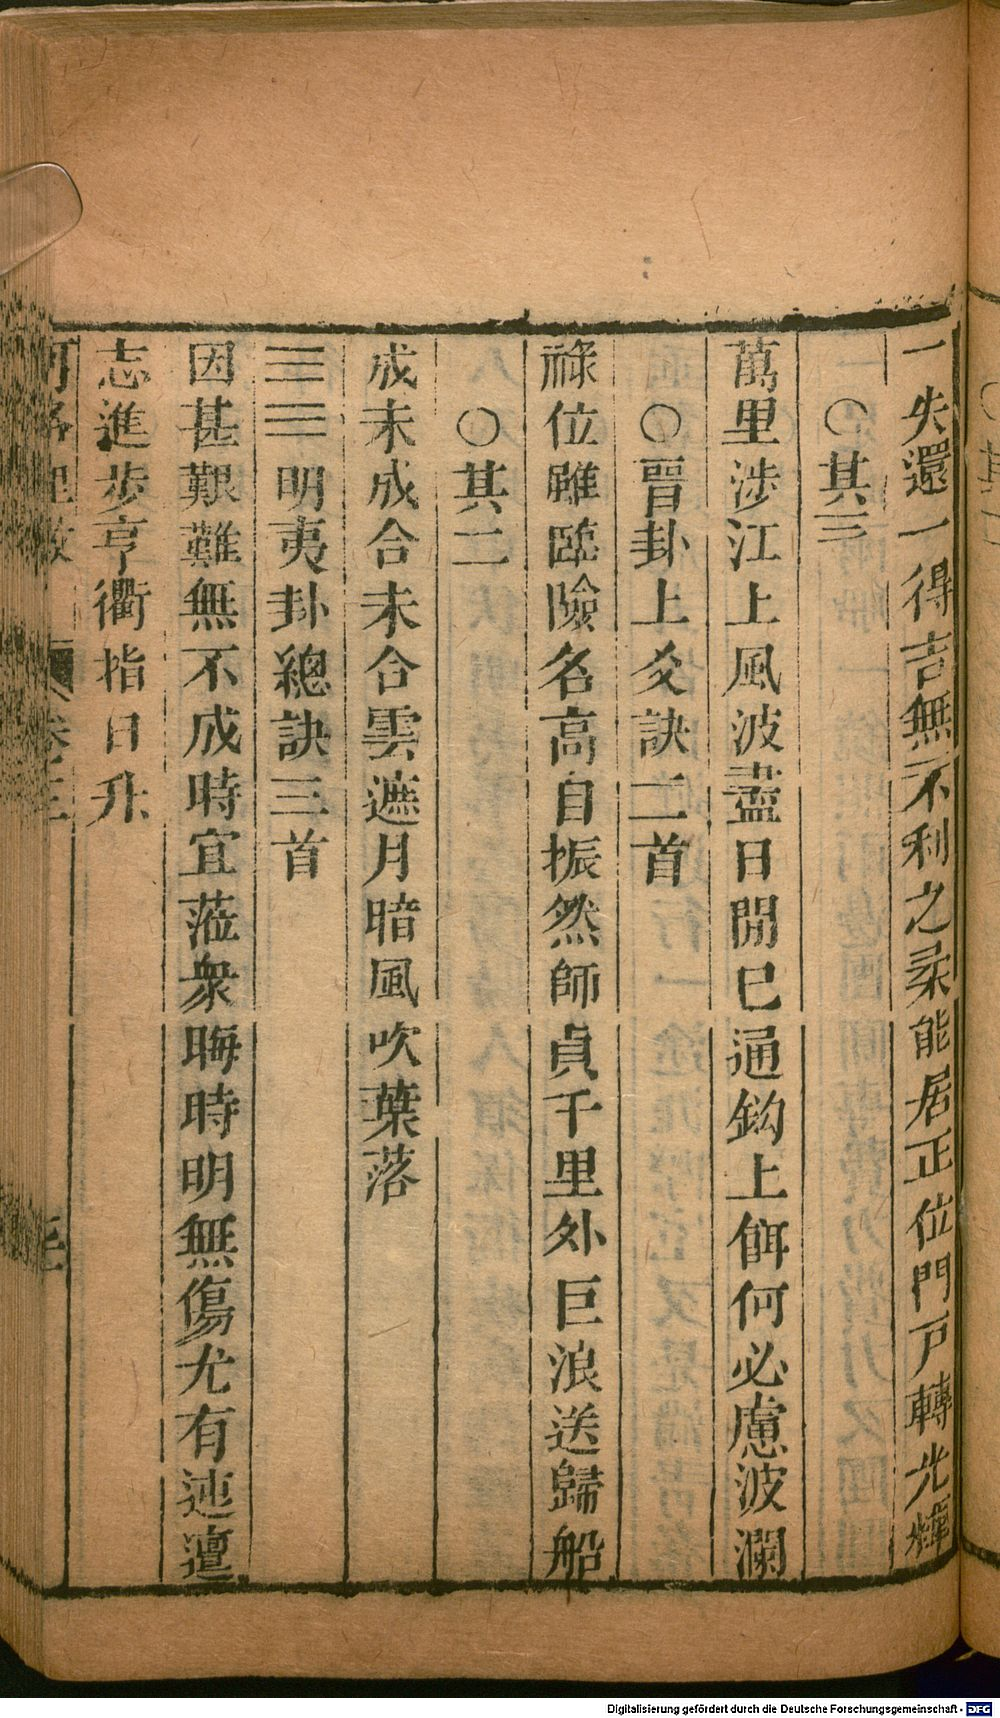 一失還一得吉無不利之柔能居正位門戸轉光輝
○其三
萬里涉江上風波盡日閒巳通鈎上餌何必慮波瀾
○晉卦上爻訣二首
祿位雖臨險名高自振然師貞千里外巨浪送歸船
○其二
成未成合未合雲遮月暗風吹葉落
☷☲明夷卦總訣三首
因甚艱難無不成時宜蒞衆晦時明無傷尤有迍邅
志進步亨衢指日升
河洛理數 卷三
Digitalisierung gefördert durch die Deutsche Forschungsgemeinschaft - DFG